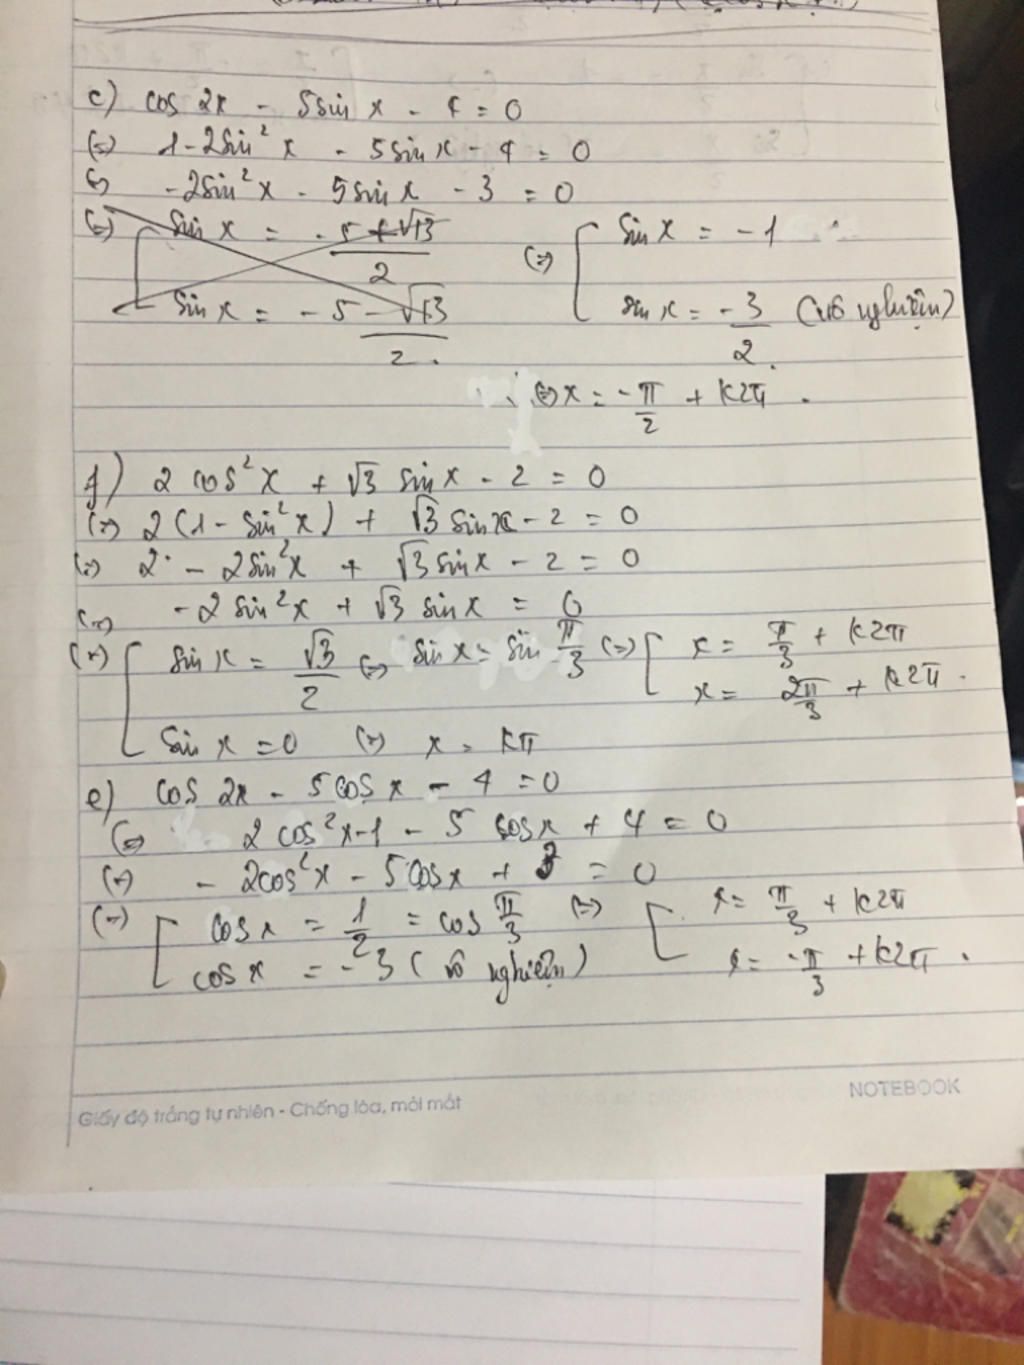 c) cos 2x - 5sin x - 4 = 0
(=) 1 - 2sin²x - 5sin x - 4 = 0
(=) -2sin²x - 5sin x - 3 = 0
(=) [ sin x = -5 + √13 / 2
sin x = -5 - √13 / 2.
(=) [ sin x = -1
sin x = -3/2 (vô nghiệm)
(=) x = -π/2 + k2π.
f) 2 cos²x + √3 sin x - 2 = 0
(=) 2(1 - sin²x) + √3 sin x - 2 = 0
(=) 2 - 2sin²x + √3 sin x - 2 = 0
(=) -2 sin²x + √3 sin x = 0
(=) [ sin x = √3/2 (=) sin x = sin π/3 (=) [ x = π/3 + k2π
x = 2π/3 + k2π.
sin x = 0 (=) x = kπ
e) cos 2x - 5cos x - 4 = 0
(=) 2 cos²x - 1 - 5 cos x + 4 = 0
(=) - 2cos²x - 5cos x + 3 = 0
(=) [ cos x = 1/2 = cos π/3 (=) [ x = π/3 + k2π
cos x = -3 (vô nghiệm) x = -π/3 + k2π.
Giấy độ trắng tự nhiên - Chống lóa, mỏi mắt
NOTEBOOK